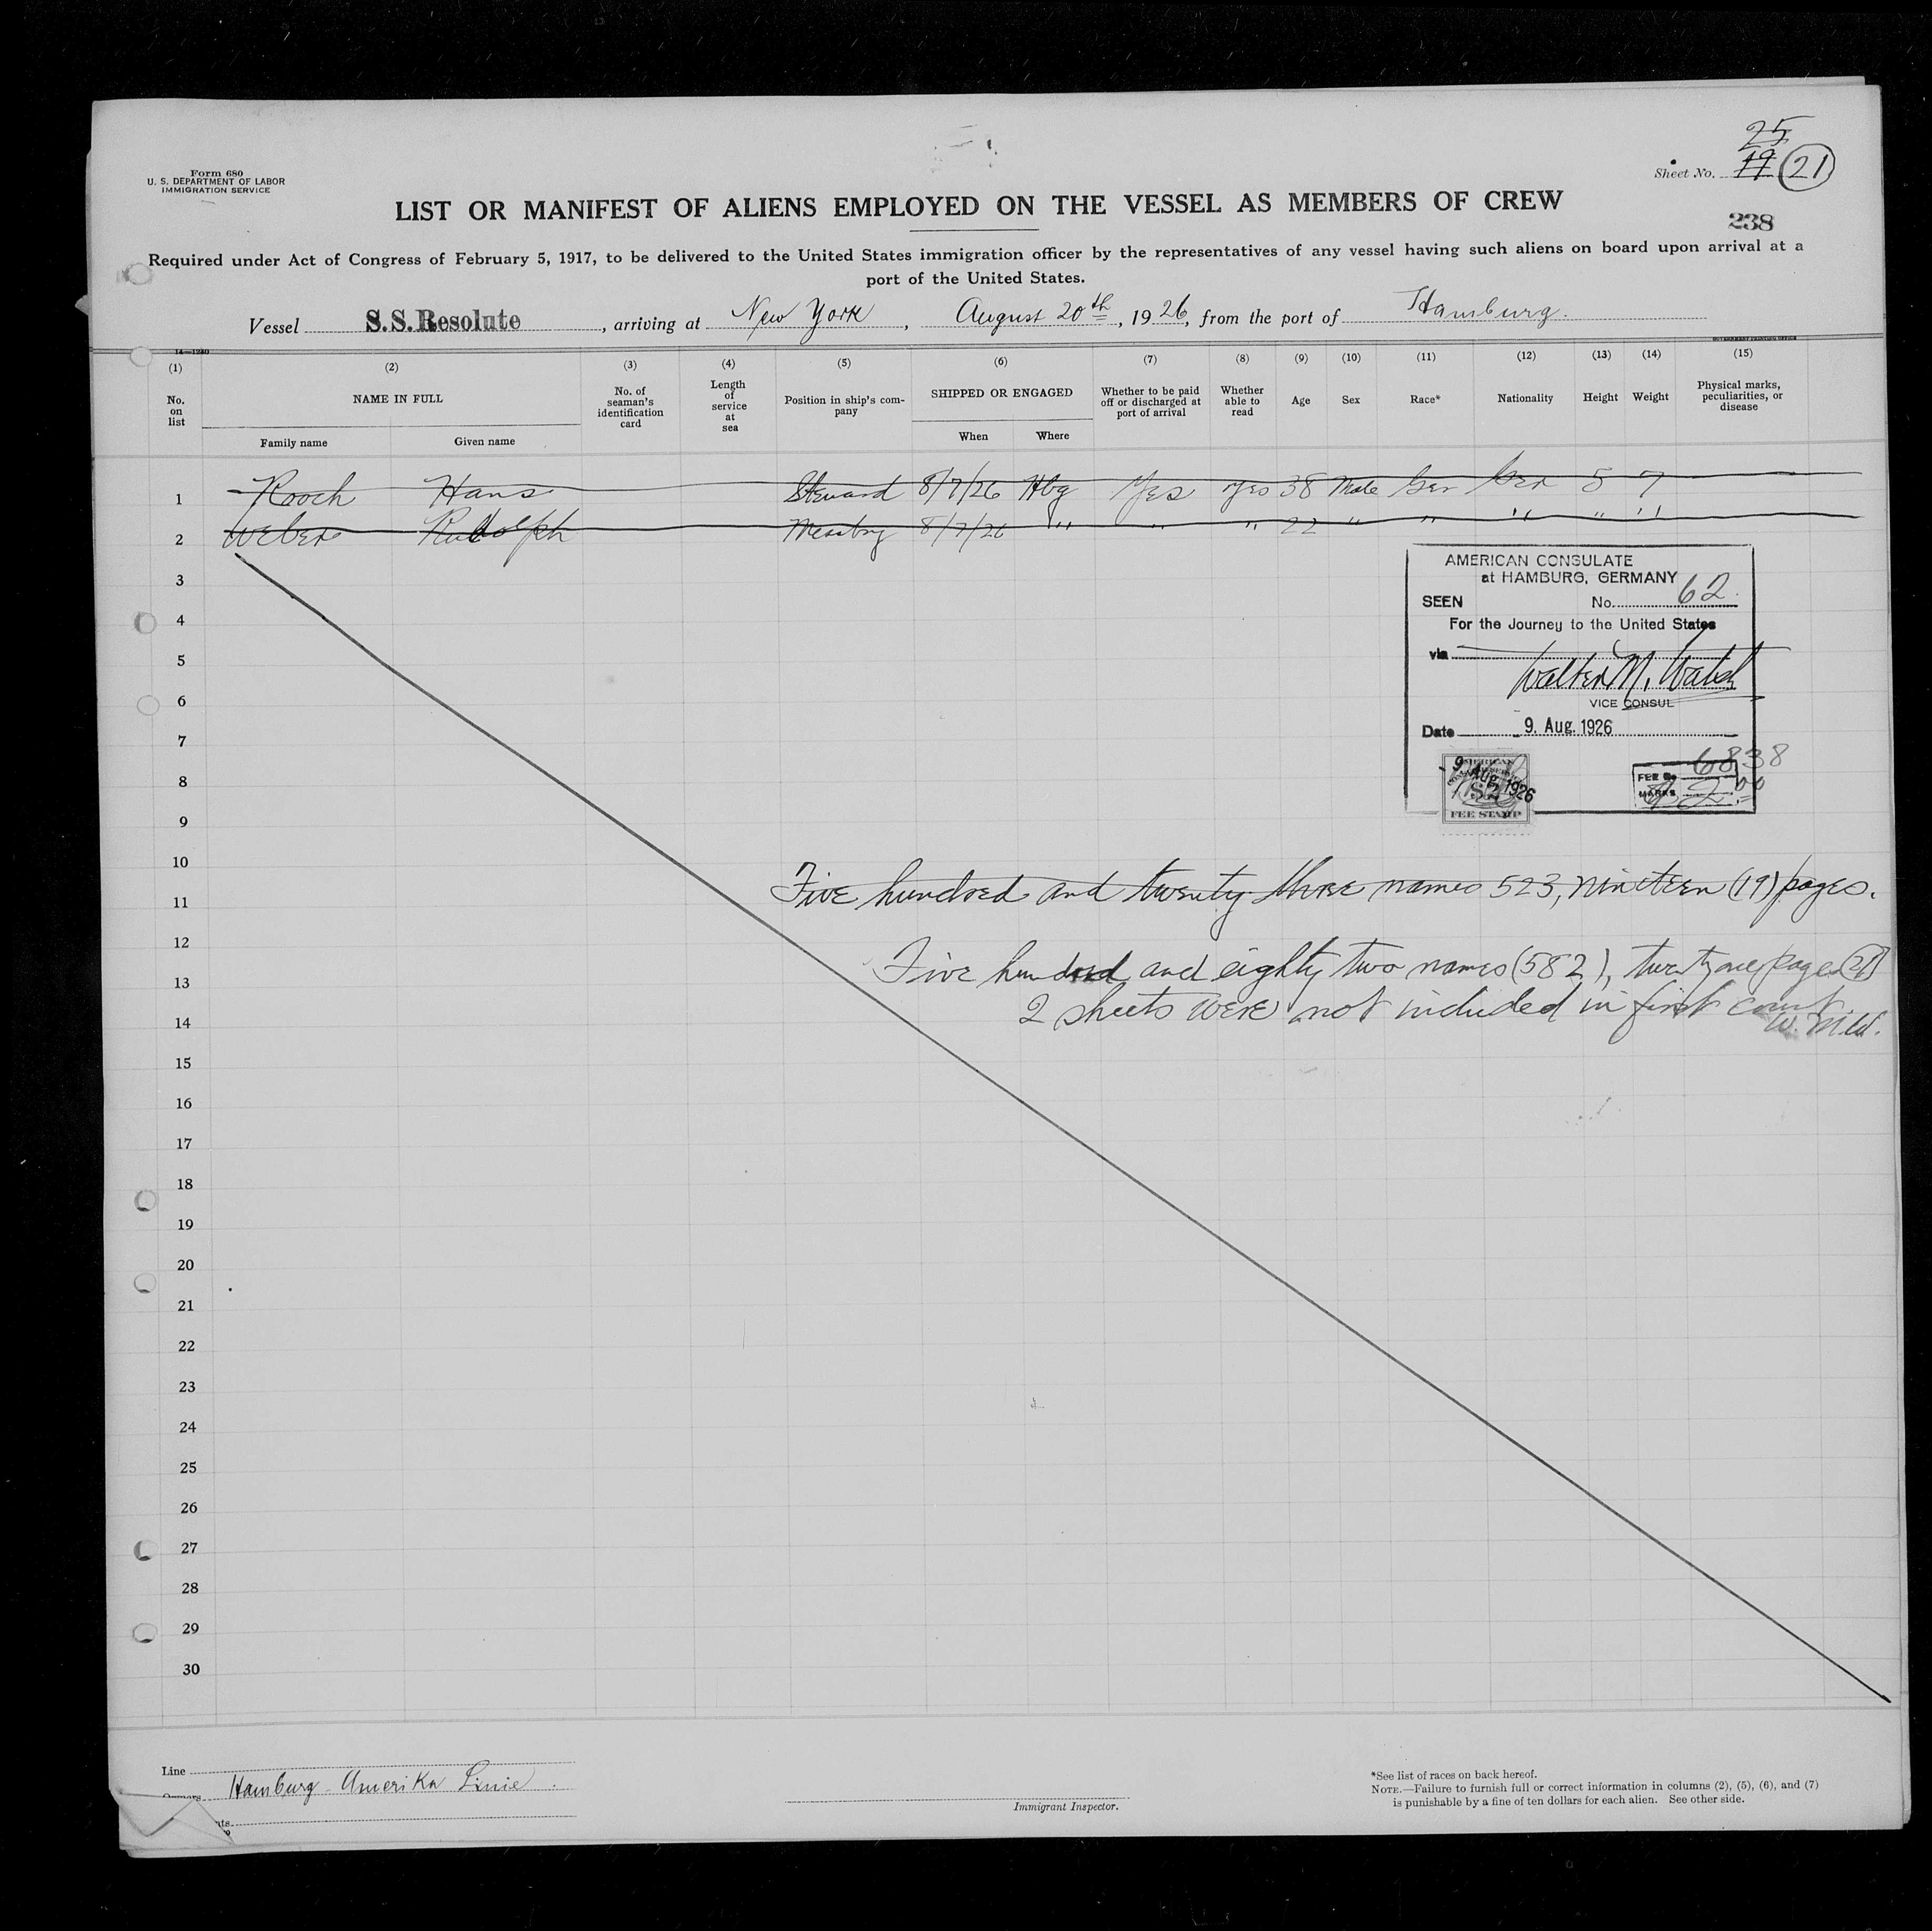 Form 680
U. S. DEPARTMENT OF LABOR
IMMIGRATION SERVICE
25
Sheet No. 19 21
LIST OR MANIFEST OF ALIENS EMPLOYED ON THE VESSEL AS MEMBERS OF CREW
238
Required under Act of Congress of February 5, 1917, to be delivered to the United States immigration officer by the representatives of any vessel having such aliens on board upon arrival at a
port of the United States.
Vessel S.S. Resolute, arriving at New York, August 20th, 1926, from the port of Hamburg.
14—1240
GOVERNMENT PRINTING OFFICE
(1) (2) (3) (4) (5) (6) (7) (8) (9) (10) (11) (12) (13) (14) (15)
No. on list
NAME IN FULL
Family name Given name
No. of seaman's identification card
Length of service at sea
Position in ship's company
SHIPPED OR ENGAGED
When Where
Whether to be paid off or discharged at port of arrival
Whether able to read
Age
Sex
Race*
Nationality
Height
Weight
Physical marks, peculiarities, or disease
1 Rooch Hans Steward 8/7/26 Hbg Yes Yes 38 Male Ger Ger 5 7
2 Weber Rudolph Messboy 8/7/26 " " " 22 " " " " "
3
4
5
6
7
8
9
10
11
12
13
14
15
16
17
18
19
20
21
22
23
24
25
26
27
28
29
30
AMERICAN CONSULATE
at HAMBURG, GERMANY
SEEN No. 62
For the Journey to the United States
via
Walter M. Walsh
VICE CONSUL
Date 9. Aug. 1926
9. Aug. 1926
FEE STAMP
6838
FEE No
MARKS
Five hundred and twenty three names 523, nineteen (19) pages.
Five hundred and eighty two names (582), twenty one pages (21)
2 sheets were not included in first count
W. M. W.
Line
Owners Hamburg Amerika Linie.
Immigrant Inspector.
*See list of races on back hereof.
NOTE.—Failure to furnish full or correct information in columns (2), (5), (6), and (7)
is punishable by a fine of ten dollars for each alien. See other side.